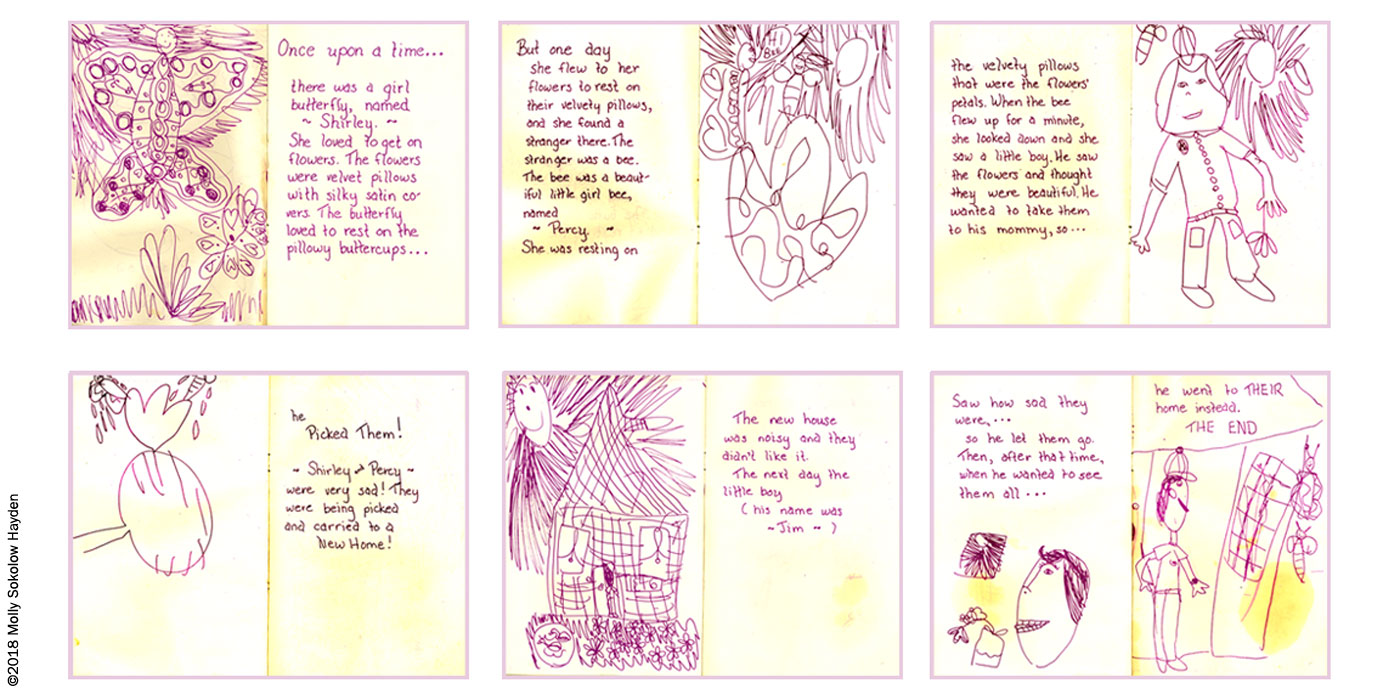 Once upon a time...
there was a girl
butterfly, named
~ Shirley. ~
She loved to get on
flowers. The flowers
were velvet pillows
with silky satin co-
vers. The butterfly
loved to rest on the
pillowy buttercups...
But one day
she flew to her
flowers to rest on
their velvety pillows,
and she found a
stranger there. The
stranger was a bee.
The bee was a beaut-
iful little girl bee,
named
~ Percy. ~
She was resting on
HI
Bee
the velvety pillows
that were the flowers'
petals. When the bee
flew up for a minute,
she looked down and she
saw a little boy. He saw
the flowers and thought
they were beautiful. He
wanted to take them
to his mommy, so...
he
Picked Them!
~ Shirley and Percy ~
were very sad! They
were being picked
and carried to a
New Home!
The new house
was noisy and they
didn't like it.
The next day the
little boy
( his name was
~ Jim ~ )
Saw how sad they
were,...
so he let them go.
Then, after that time,
when he wanted to see
them all...
he went to THEIR
home instead.
THE END
©2018 Molly Sokolow Hayden